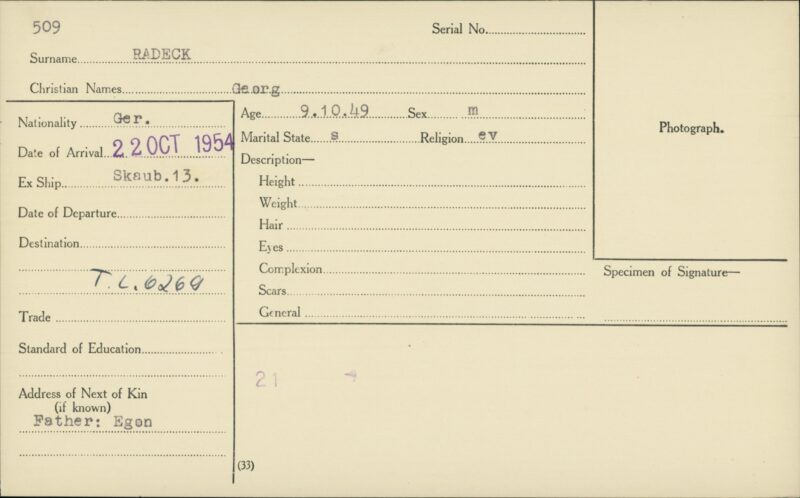 509
Serial No.
Surname RADECK
Christian Names Georg
Nationality Ger.
Date of Arrival 22 OCT 1954
Ex Ship Skaub.13.
Date of Departure
Destination
T.L.6269
Trade
Standard of Education
Address of Next of Kin
(if known)
Father: Egon
Age 9.10.49 Sex m
Marital State s Religion ev
Description—
Height
Weight
Hair
Eyes
Complexion
Scars
General
21
(33)
Photograph.
Specimen of Signature—